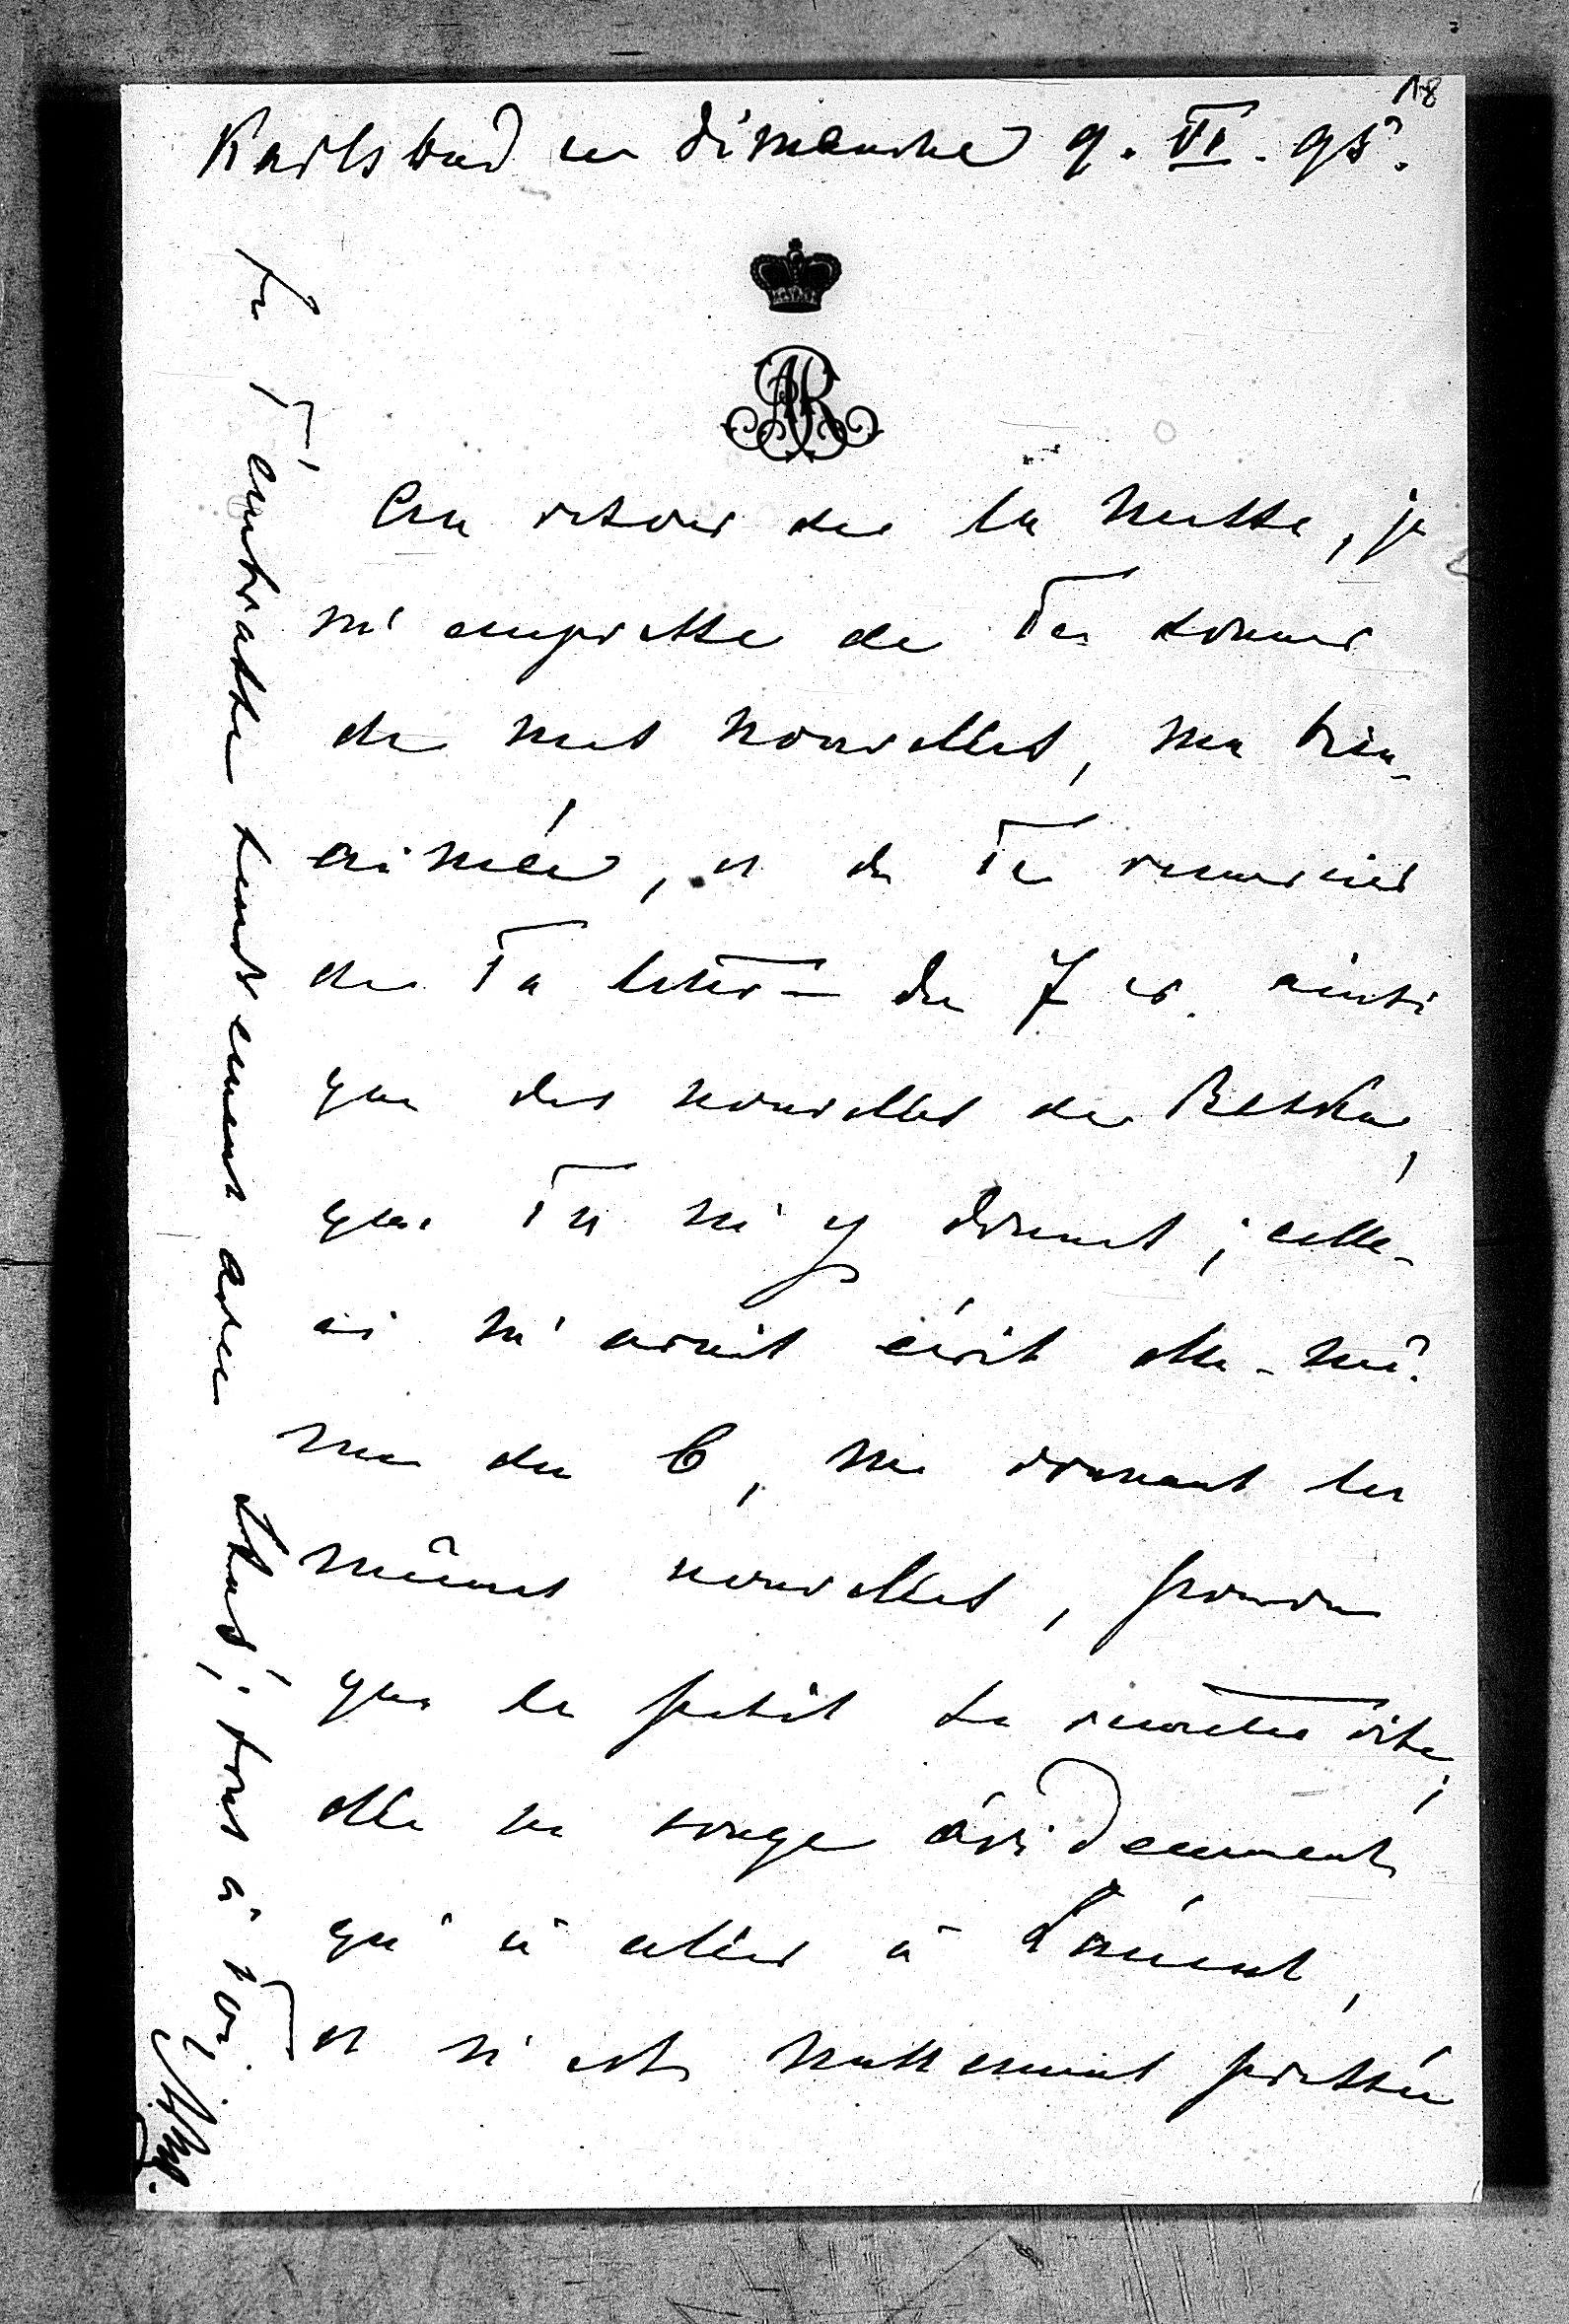 18
Karlsbad ce dimanche 9. VI. 95.
AR
Au retour de la messe, je
m'empresse de Te donner
de mes nouvelles, ma bien-
aimée, et de Te remercier
de Ta lettre du 7 cr. ainsi
que des nouvelles de
que Tu m'y donnes; celle-
ci m'avait écrit elle-mê-
me du 6, me donnant les
mêmes nouvelles, pourvu
que le petit se remette vite;
elle ne songe évidemment
qu'à aller à
et n'est nullement pressée
Je T'embrasse tendrement avec
tout à Toi